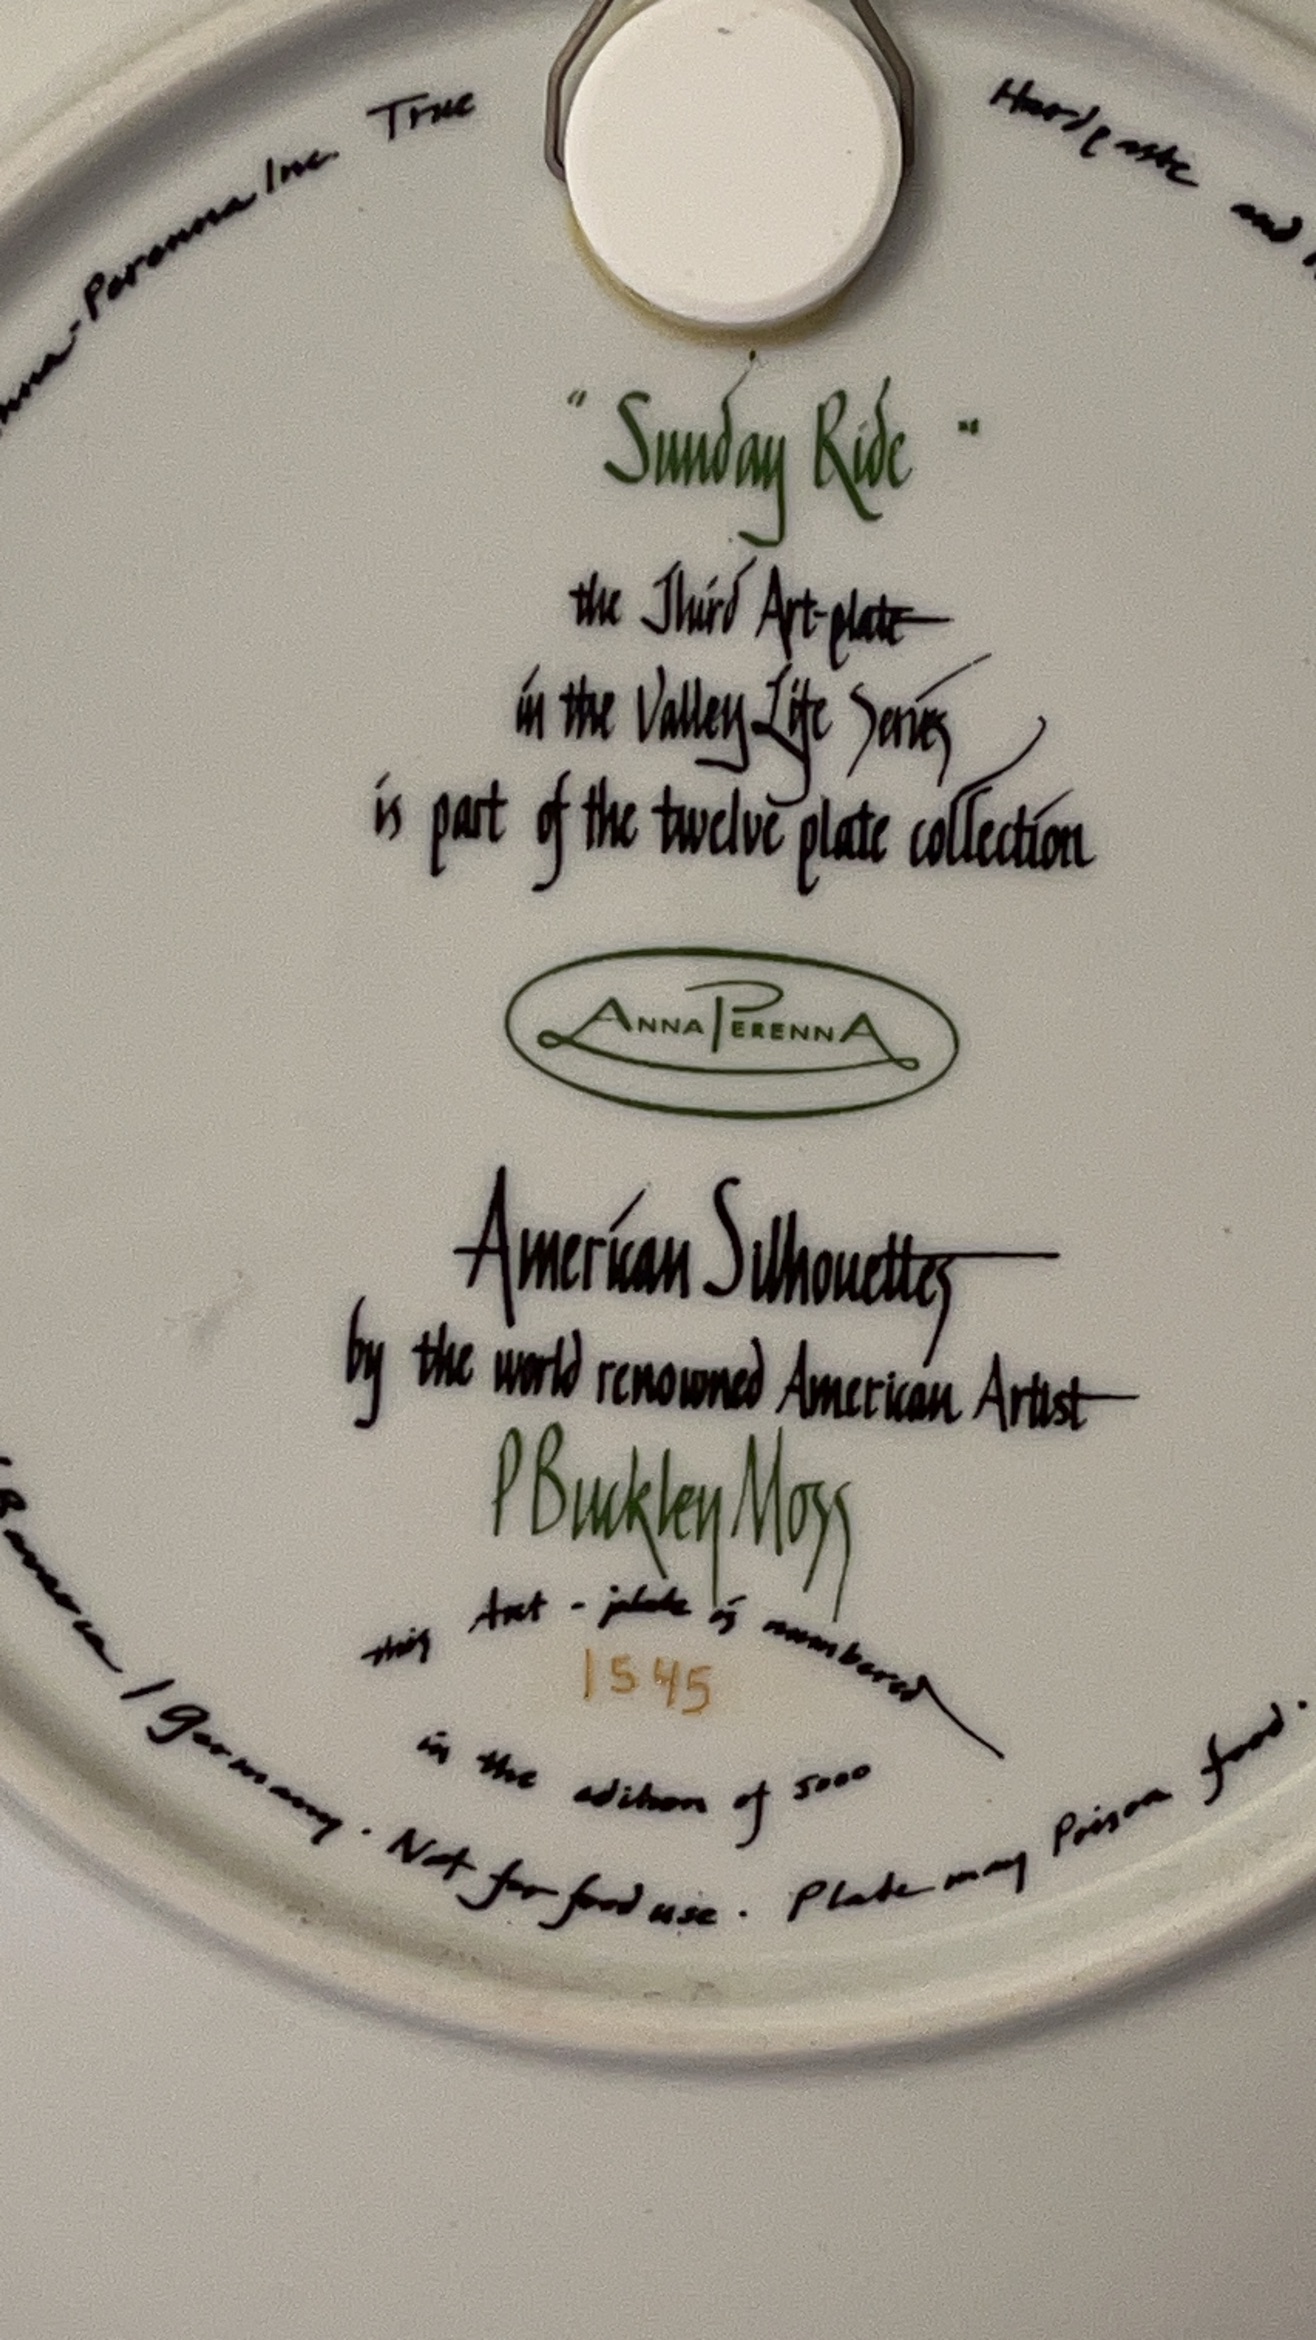 Perenna Inc. True
Hardpaste and
"Sunday Ride"
the Third Art-plate
in the Valley Life Series
is part of the twelve plate collection
ANNA PERENNA
American Silhouettes
by the world renowned American Artist
P Buckley Moss
this Art-plate is numbered
1545
in the edition of 5000
Bavaria / Germany. Not for food use. Plate may Poison food.